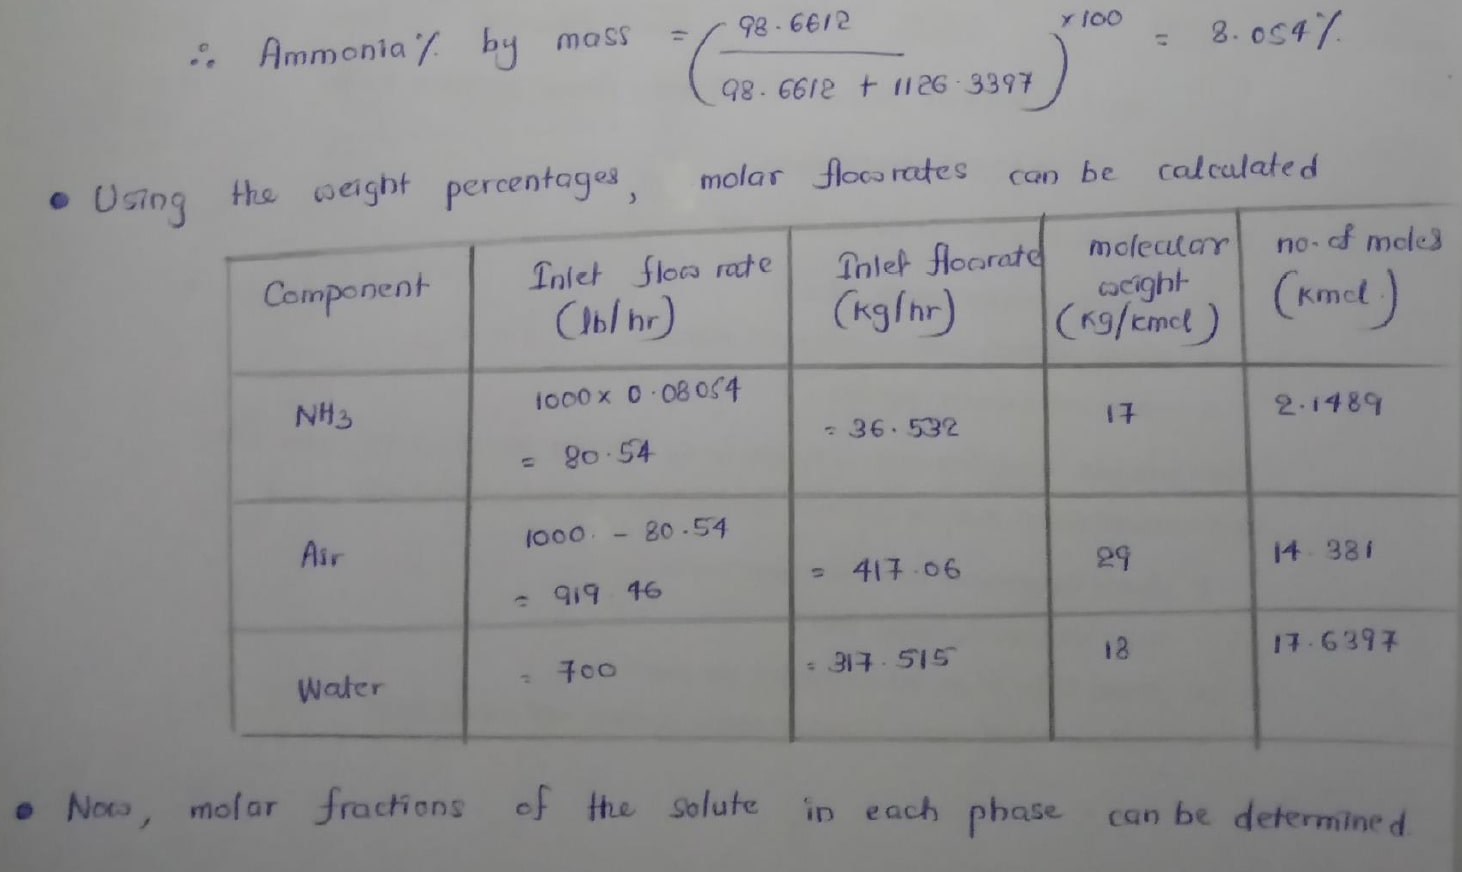 ∴ Ammonia % by mass = (98.6612 / 98.6612 + 1126.3397) × 100 = 8.054%
• Using the weight percentages, molar flowrates can be calculated
Component | Inlet flow rate (lb/hr) | Inlet flowrate (Kg/hr) | molecular weight (Kg/kmol) | no. of moles (Kmol.)
NH3 | 1000 x 0.08054 = 80.54 | = 36.532 | 17 | 2.1489
Air | 1000. - 80.54 = 919.46 | = 417.06 | 29 | 14.381
Water | = 700 | = 317.515 | 18 | 17.6397
• Now, molar fractions of the solute in each phase can be determined